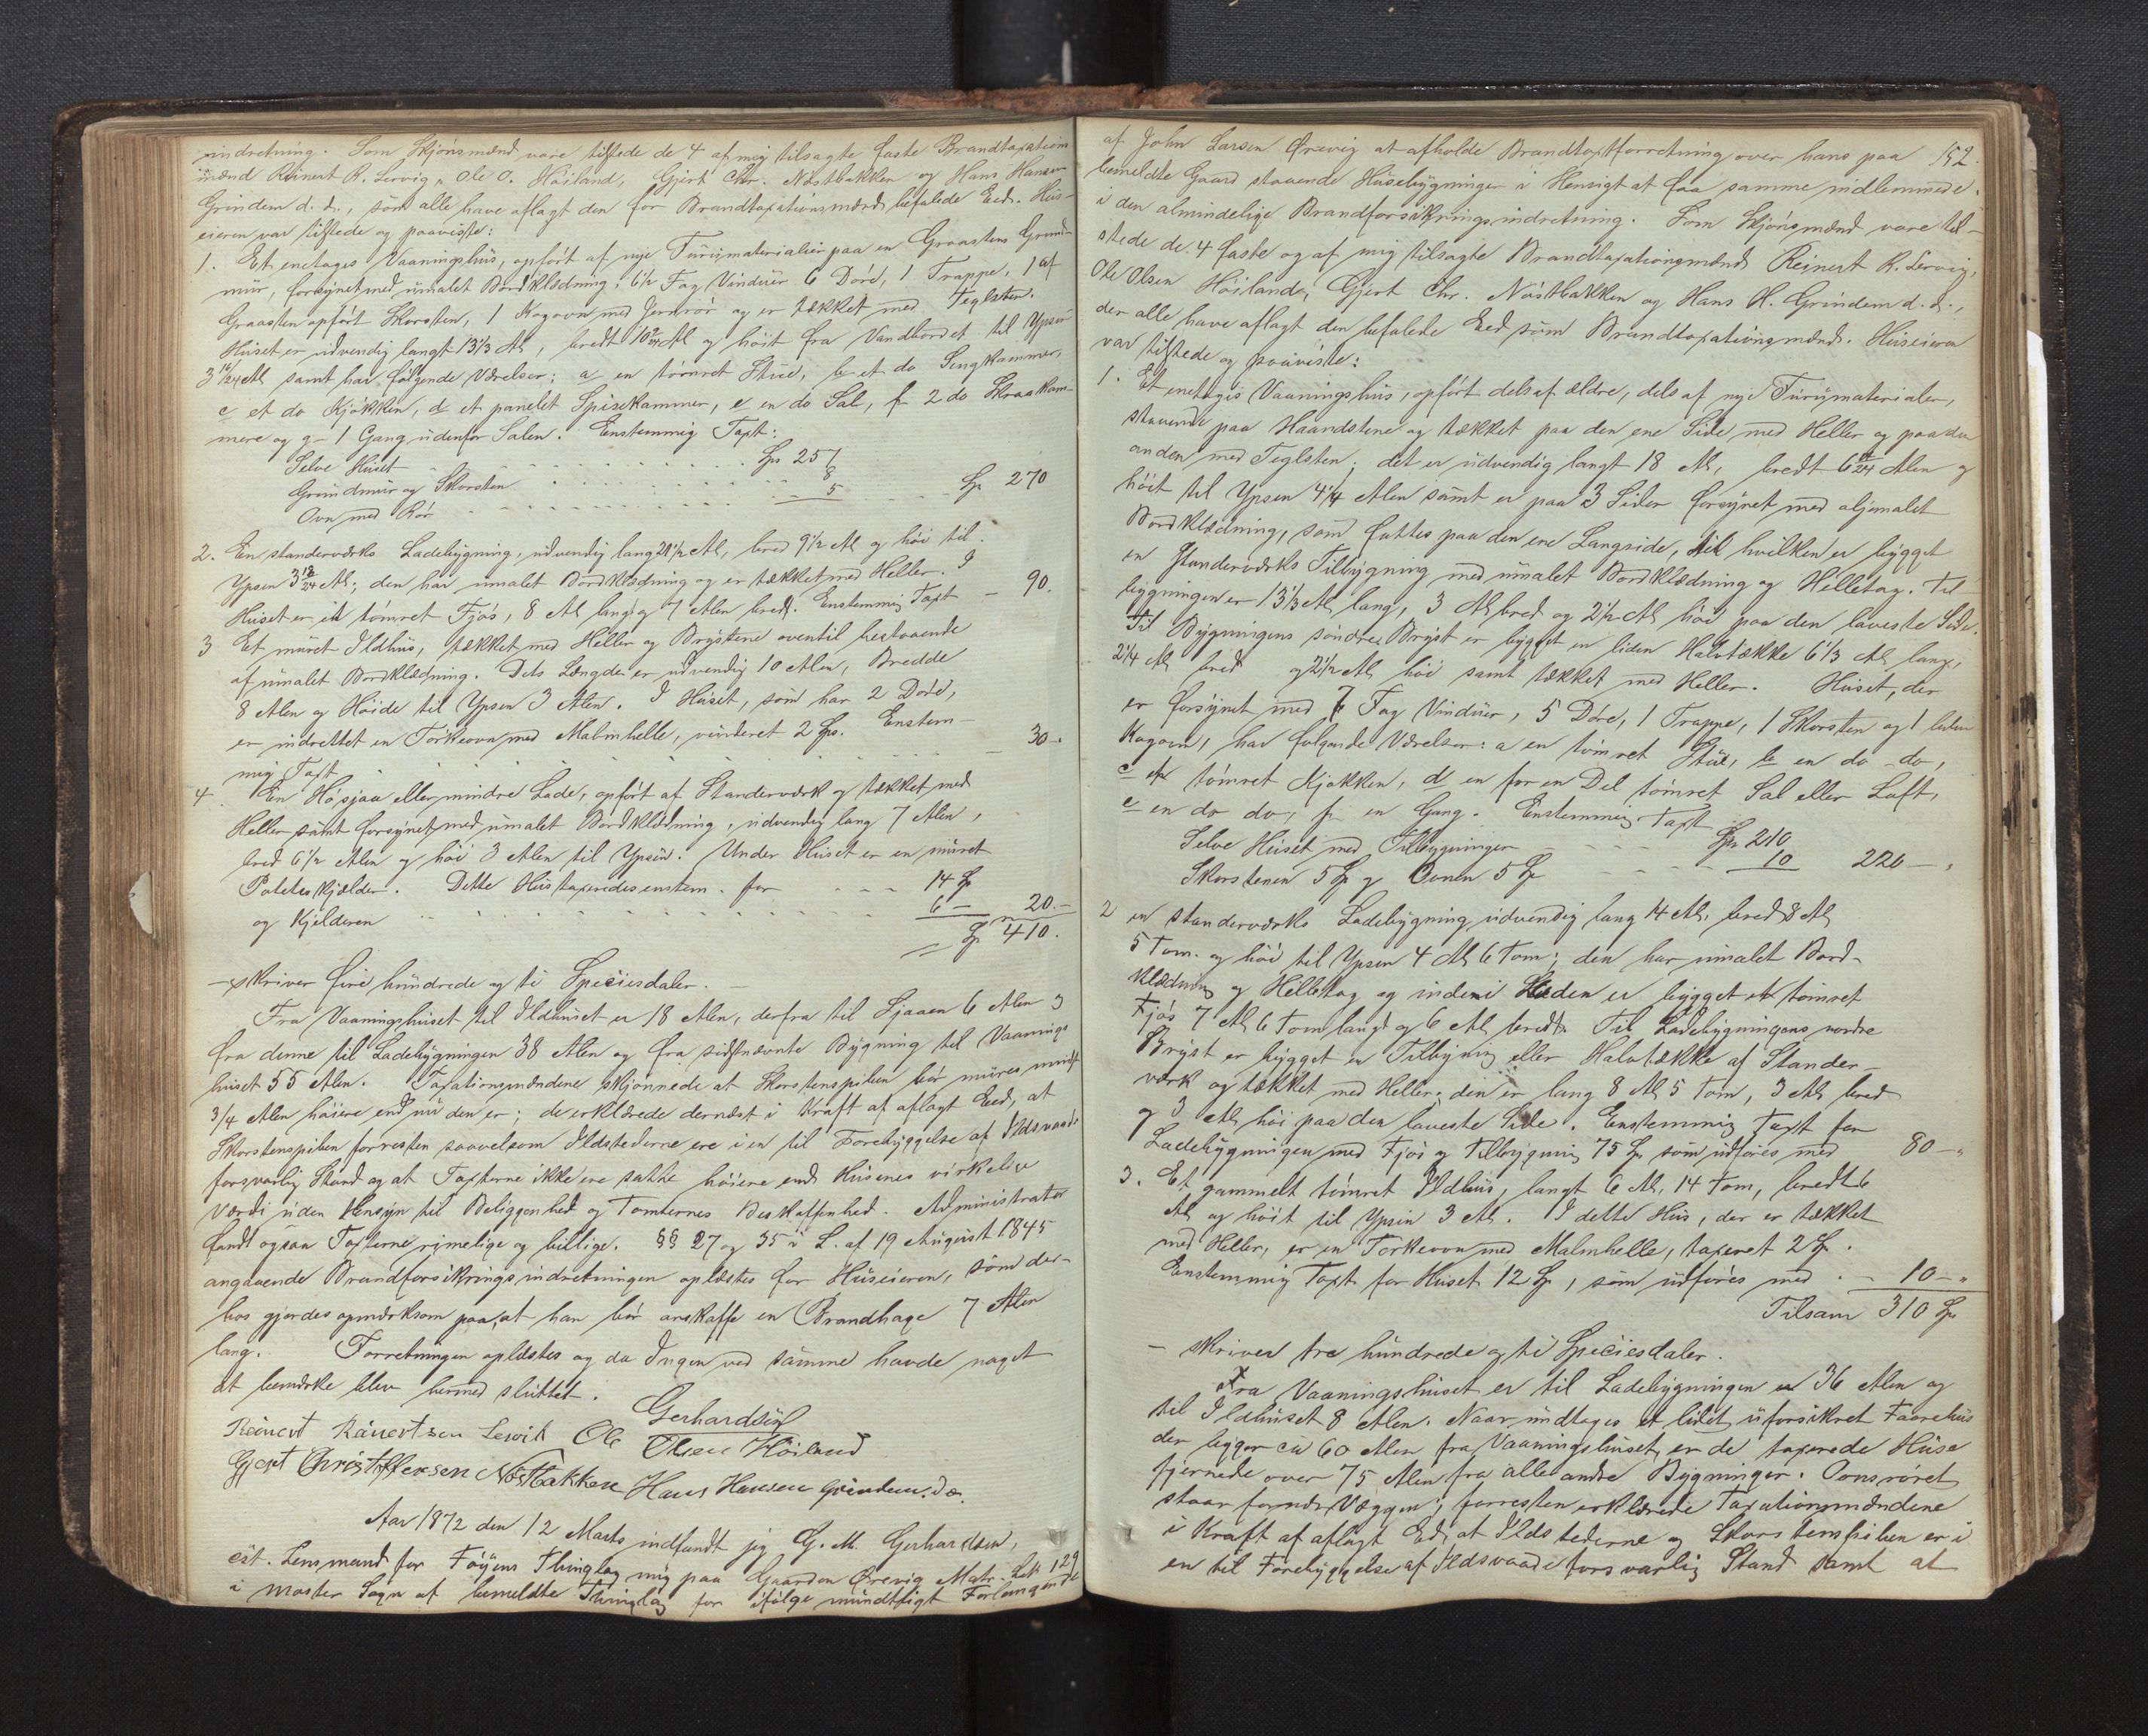 indretning. Som Skjönsmænd vare tilstede de 4 af mig tilsagte faste Brandtaxations
mænd Reinert R. Lervig, Ole O. Höiland, Gjert Chr. Nöstbakken og Hans Hansen
Grindem d. æ., som alle have aflagt den for Brandtaxationsmænd befalede Eed. Hus-
eieren var tilstede og paaviste:
1. Et enetages Vaaningshus, opfört af nye Furumaterialier paa en Graastens Grund-
mur, forsynet med umalet Bordklædning, 6½ Fag Vinduer 6 Döre, 1 Trappe, 1 af
Graasten opfört Skorsten, 1 Kogovn med Jernrör og er tækket med Teglsten.
Huset er udvendig langt 13⅓ Al, bredt 10 2/24 Al og höit fra Vandbordet til Ypsen
3 16/24 Al samt har fölgende Værelser: a en tömret Stue, b et do Sengkammer,
c et do Kjökken, d et panelet Spisekammer, e en do Sal, f 2 do Skraakam-
mere og g - 1 Gang udenfor Salen. Enstemmig Taxt:
Selve Huset Sp 257
Grundmur og Skorsten 8
Ovn med Rör 5 Sp 270
2. En standerværks Ladebygning, udvendig lang 21½ Al, bred 9½ Al og höi til
Ypsen 3 18/24 Al; den har umalet Bordklædning og er tækket med Heller. I
Huset er et tömret Fjös, 8 Al lang og 7 Alen bredt. Enstemmig Taxt - 90.
3 Et muret Ildhus, tækket med Heller og Brystene oventil bestaaende
af umalet Bordklædning. Dets Længde er udvendig 10 Alen, Bredde
8 Alen og Höide til Ypsen 3 Alen. I Huset, som har 2 Döre,
er indrettet en Törkeovn med Malmhelle, vurderet 2 Sp. Enstem-
mig Taxt - 30.
4. En Hösjaa eller mindre Lade, opfört af Standerværk og tækket med
Heller samt forsynet med umalet Bordklædning, udvendig lang 7 Alen,
bred 6½ Alen og höi 3 Alen til Ypsen. Under Huset er en muret
Poteteskjælder. Dette Hus taxeredes enstem. for 14 Sp
og Kjelderen 6 - 20.-
Sp 410.
- skriver fire hundrede og ti Speciesdaler. -
Fra Vaaningshuset til Ildhuset er 18 Alen, derfra til Sjaaen 6 Alen
fra denne til Ladebygningen 38 Alen og fra sidstnævnte Bygning til Vaanings
huset 55 Alen. Taxationsmændene skjönnede at Skorstenspiben bör mures mindst
3/4 Alen höiere end nu den er; de erklærede dernæst i Kraft af aflagt Eed, at
Skorstenspiben forresten saavelsom Ildstederne ere i en til Forebyggelse af Ildsvaade
forsvarlig Stand og at Taxterne ikke ere satte höiere end Husenes virkelige
Værdi uden Hensyn til Beliggenhed og Tomternes Beskaffenhed. Administrator
fandt ogsaa Taxterne rimelige og billige. §§ 27 og 35 i L. af 19 August 1845
angaaende Brandforsikringsindretningen oplæstes for Huseieren, som der-
hos gjordes opmærksom paa, at han bör anskaffe en Brandhage 7 Alen
lang. Forretningen oplæstes og da Ingen ved samme havde noget
at bemærke blev hermed sluttet.
Gerhardsen
Reinert Reinertsen Lervik Ole Olsen Höiland
Gjert Christoffersen Nöstbakken Hans Hansen Grindem d. æ.
Aar 1872 den 12 Marts indfandt jeg G. M. Gerhardsen,
cst. Lensmand for Föyens Thinglag mig paa Gaarden Örevig Matr. Lb 129
i Moster Sogn af bemeldte Thinglag for ifölge mundtligt Forlangende
af John Larsen Örevig at afholde Brandtaxtforretning over hans paa 152.
bemeldte Gaard staaende Husebygninger i Hensigt at faa samme indlemmede
i den almindelige Brandforsikringsindretning. Som Skjönsmænd vare til-
stede de 4 faste og af mig tilsagte Brandtaxationsmænd Reinert R. Lervig,
Ole Olsen Höiland, Gjert Chr. Nöstbakken og Hans H. Grindem d. æ.,
der alle have aflagt den befalede Eed som Brandtaxationsmænd. Huseieren
var tilstede og paaviste:
1. Et enetages Vaaningshus, opfört dels af ældre, dels af nye Furumaterialer,
staaende paa Haandstene og tækket paa den ene Side med Heller og paa den
anden med Teglsten; det er udvendig langt 18 Al, bredt 6 /24 Alen og
höit til Ypsen 4¼ Alen samt er paa 3 Sider forsynet med oljemalet
Bordklædning, som fattes paa den ene Langside, til hvilken er bygget
en Standerværks Tilbygning med umalet Bordklædning og Helletag. Til-
bygningen er 13⅓ Al lang, 3 Al bred og 2½ Al höi paa den laveste Side.
Til Bygningens söndre Bryst er bygget en liden Halvtække 6⅓ Al lang,
2¼ Al bred og 2½ Al höi samt tækket med Heller. Huset, der
er forsynet med 7 Fag Vinduer, 5 Döre, 1 Trappe, 1 Skorsten og 1 liden
Kogovn, har fölgende Værelser: a en tömret Stue, b en do do,
c et tömret Kjökken, d en for en Del tömret Sal eller Loft,
e en do do, f en Gang. Enstemmig Taxt
Selve Huset med Tilbygninger Sp 210
Skorstenen 5 Sp og Ovnen 5 Sp 10 220 - "
2 en standerværks Ladebygning, udvendig lang 14 Al, bred 8 Al
5 Tom. og höi til Ypsen 4 Al 6 Tom; den har umalet Bord-
klædning og Helletag og indeni Laden er bygget et tömret
Fjös 7 Al 6 Tom langt og 6 Al bredt. Til Ladebygningens nordre
Bryst er bygget en Tilbygning eller Halvtække af Stander-
værk og tækket med Heller; den er lang 8 Al 5 Tom, 3 Al bred
og 3 Al höi paa den laveste Side. Enstemmig Taxt for
Ladebygningen med Fjös og Tilbygning 75 Sp som udföres med 80 - "
3. Et gammelt tömret Ildhus, langt 6 Al, 14 Tom, bredt 6
Al og höit til Ypsen 3 Al. I dette Hus, der er tækket
med Heller, er en Törkeovn med Malmhelle, taxeret 2 Sp.
Enstemmig Taxt for Huset 12 Sp, som udföres med - 10 - "
Tilsam 310 Sp
- skriver tre hundrede og ti Speciesdaler.
Fra Vaaningshuset er til Ladebygningen 36 Alen og
til Ildhuset 8 Alen. Naar undtages et lidet uforsikret Faarehus
der ligger ca 60 Alen fra Vaaningshuset, er de taxerede Huse
fjernede over 75 Alen fra alle andre Bygninger. Ovnsröret
staar for nær Væggen; forresten erklærede Taxationsmændene
i Kraft af aflagt Ed, at Ildstederne og Skorstenspiben er i
en til Forebyggelse af Ildsvaade forsvarlig Stand samt at